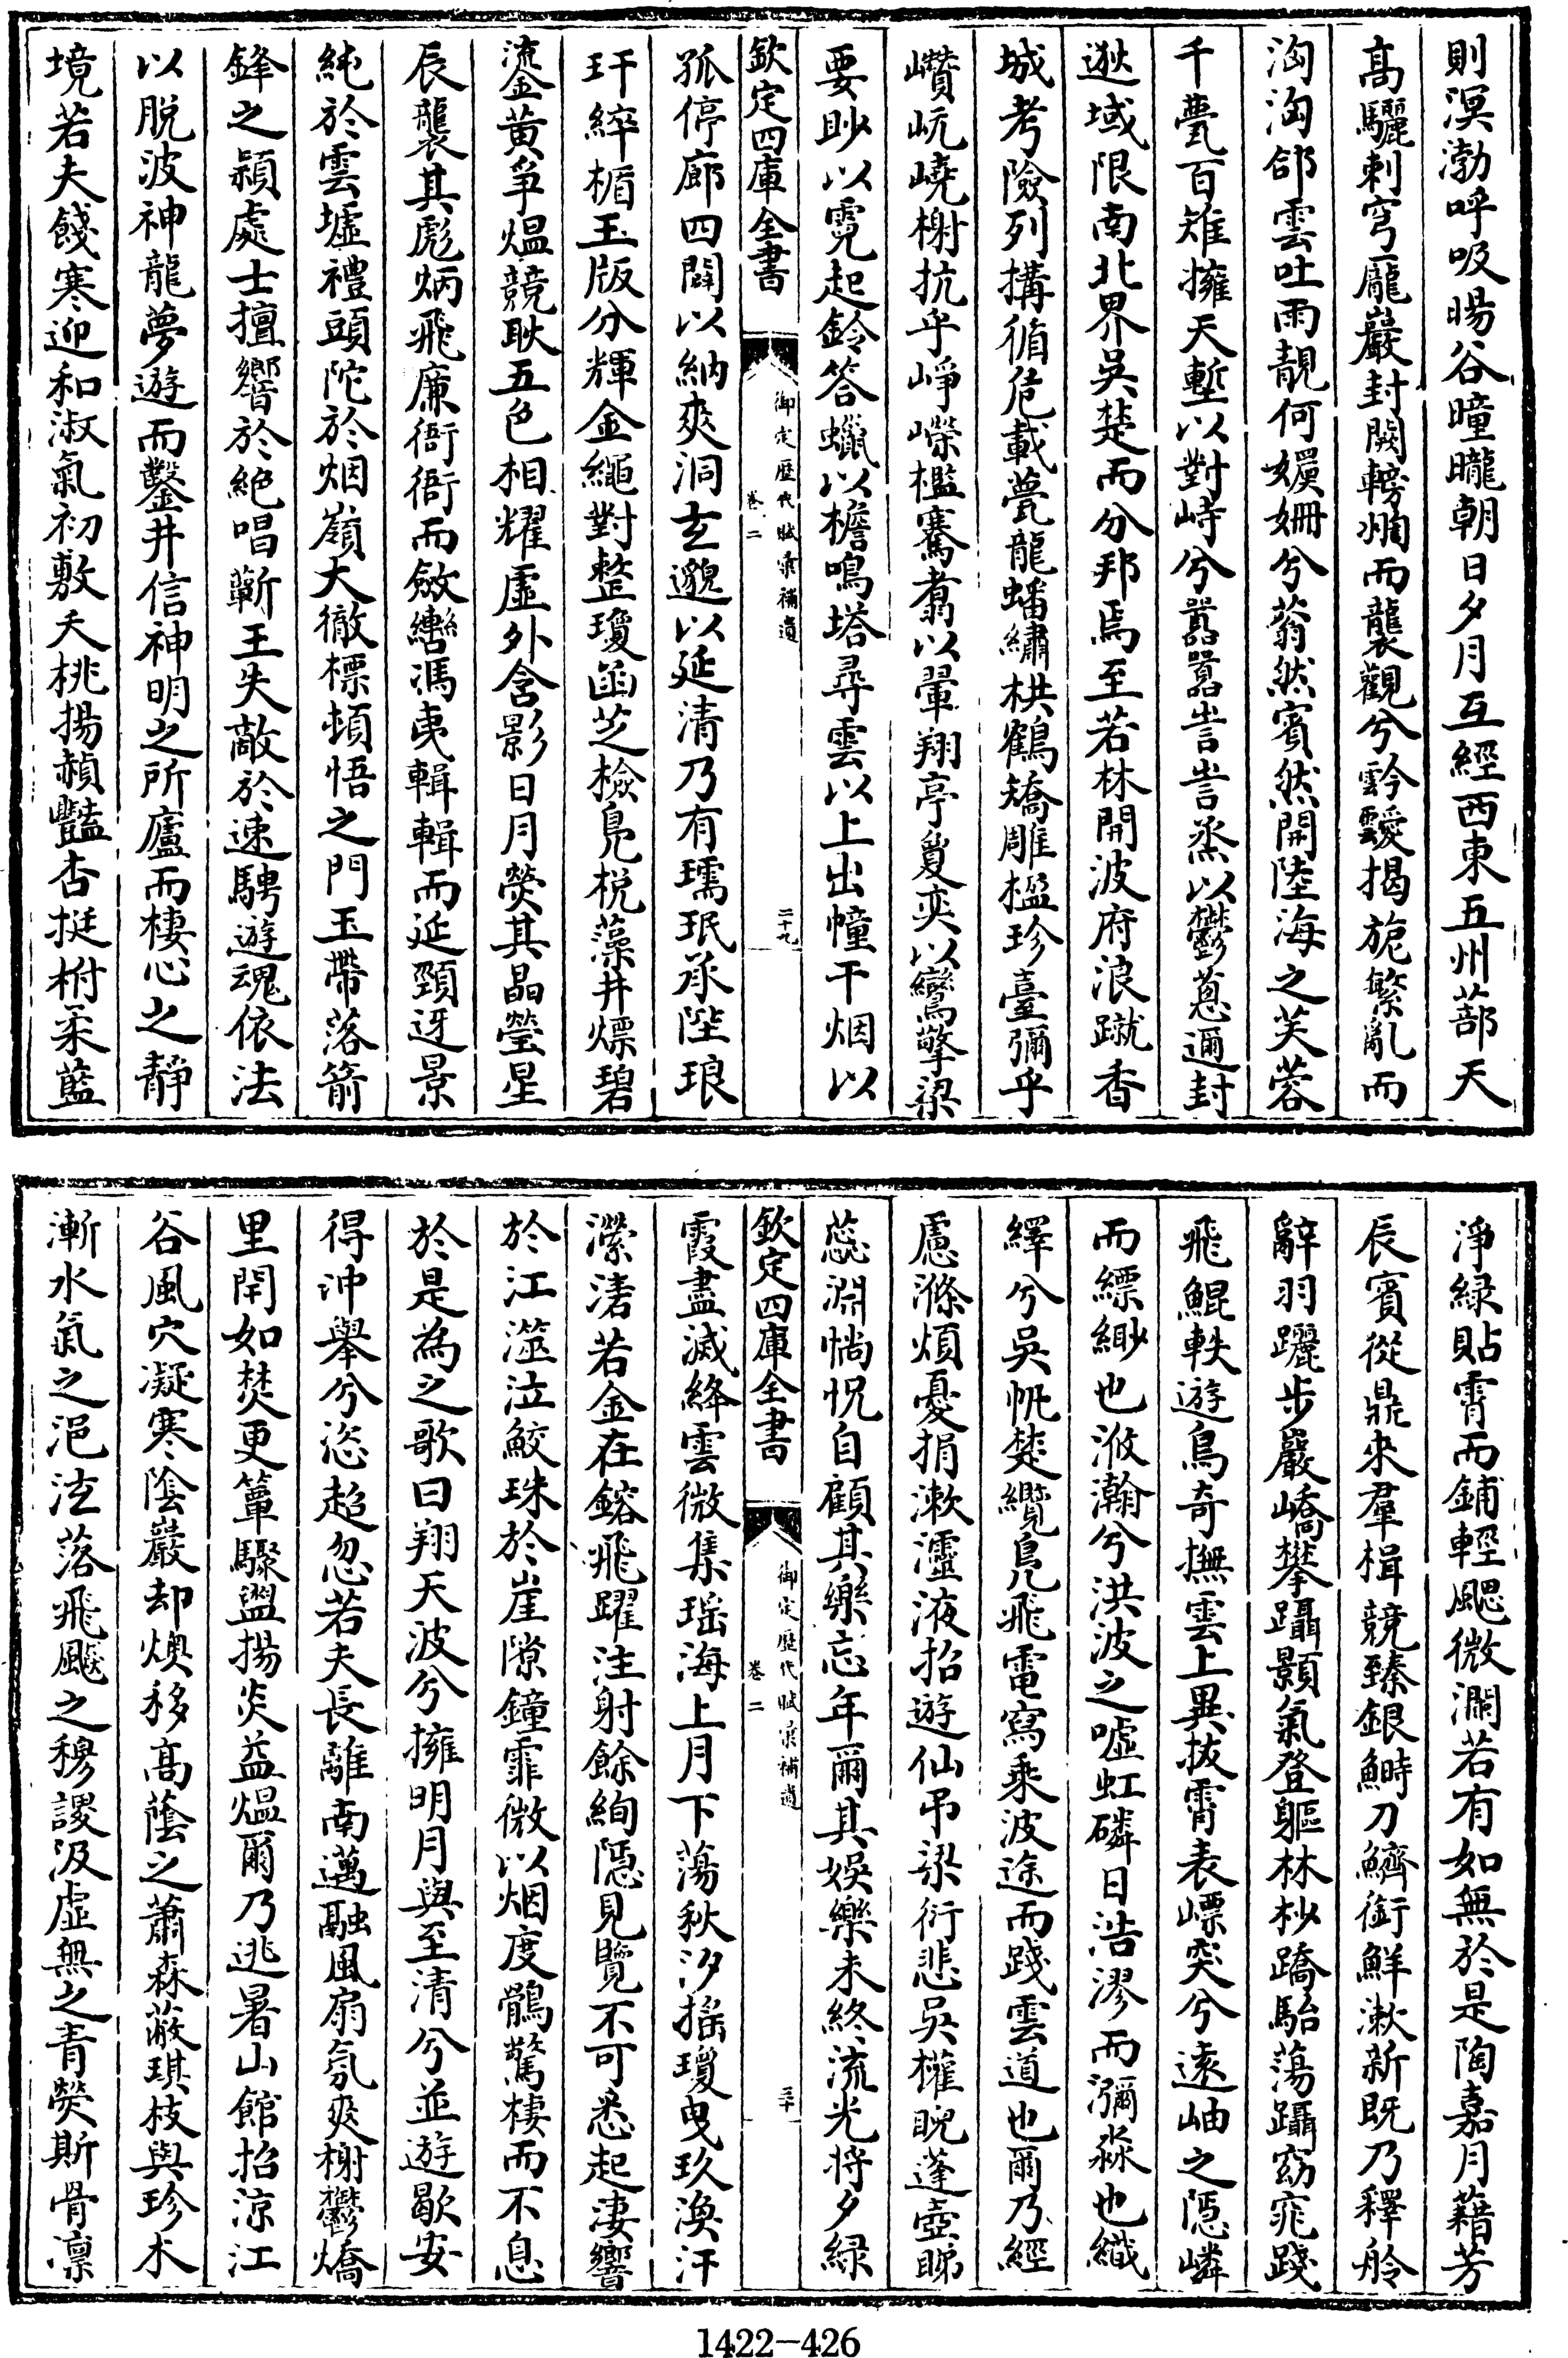 則溟渤呼吸暘谷曈曨朝日夕月互經西東五州蔀天
高驪刺穹龐巖封闕轇烱而襲觀兮霒靉揭旎繁亂而
洶洶郃雲吐雨靚何嬽姍兮蓊然賓然開陸海之芙蓉
千甍百雉擁天塹以對峙兮嚣嚣訔訔烝以鬱蔥邇封
逖域限南北界吳楚而分邦焉至若林開波府浪蹴香
城考險列搆循危載甍龍蟠繡栱鶴矯雕楹珍臺彌乎
巑岏嶢榭抗乎崢嶸檻騫翥以翬翔亭敻奕以鸞擎梁
要眇以霓起鈴答蠟以檐鳴塔尋雲以上出幢干烟以
欽定四庫全書
御定歷代賦彙補遺
卷二
二十九
孤停廊四闢以納爽洞玄邈以延清乃有瓀珉承陛琅
玕綷楯玉版分輝金繩對整瓊函芝檢鳧梲藻井熛碧
流金黃爭熅競耿五色相耀虛外含影日月熒其晶瑩星
辰襲其彪炳飛廉衙衙而斂轡馮夷輯輯而延頸迓景
純於雲墟禮頭陀於烟嶺大徹標頓悟之門玉帶落箭
鋒之潁處士擅響於絶唱蘄王失敵於速騁遊魂依法
以脫波神龍夢遊而鑿井信神明之所廬而棲心之靜
境若夫餞寒迎和淑氣初敷夭桃揚頳豔杏挺柎采藍
淨緑貼霄而鋪輕颸微瀾若有如無於是陶嘉月藉芳
辰賓從鼎來羣楫競臻銀鰣刀鱭銜鮮漱新既乃釋舲
辭羽躧步巖嶠攀躡顥氣登軀林杪蹻駘蕩躡窈窕踐
飛鯤軼遊鳥奇撫雲上異拔霄表嶫突兮遠岫之隱嶙
而縹緲也滺瀚兮洪波之噓虹磷日浩漻而瀰淼也纖
繹兮吳帆楚纜鳧飛電寫乘波途而踐雲道也爾乃經
慮滌煩憂捐漱靈液招遊仙弔梁衍悲吳權睨蓬壺睇
蕊淵惝怳自顧其樂忘年爾其娛樂未終流光將夕緑
欽定四庫全書
御定歷代賦彙補遺
卷二
三十
霞盡滅絳雲微集瑶海上月下蕩秋汐揺瓊曳玖渙汗
瀠渚若金在鎔飛躍注射餘絢隱見覽不可悉起淒響
於江澨泣鮫珠於崖隙鐘霏微以烟度鶻驚棲而不息
於是為之歌曰翔天波兮擁明月與至清兮並遊歇安
得沖舉兮恣超忽若夫長離南邁融風扇氛爽榭鬱燆
里閈如焚更簟驟盥揚炎益熅爾乃逃暑山館招涼江
谷風穴凝寒陰巖却燠移高蔭之蕭森蔽琪枝與珍木
漸水氣之浥浤落飛飈之穆謖汲虛無之青熒斯骨凛
1422-426